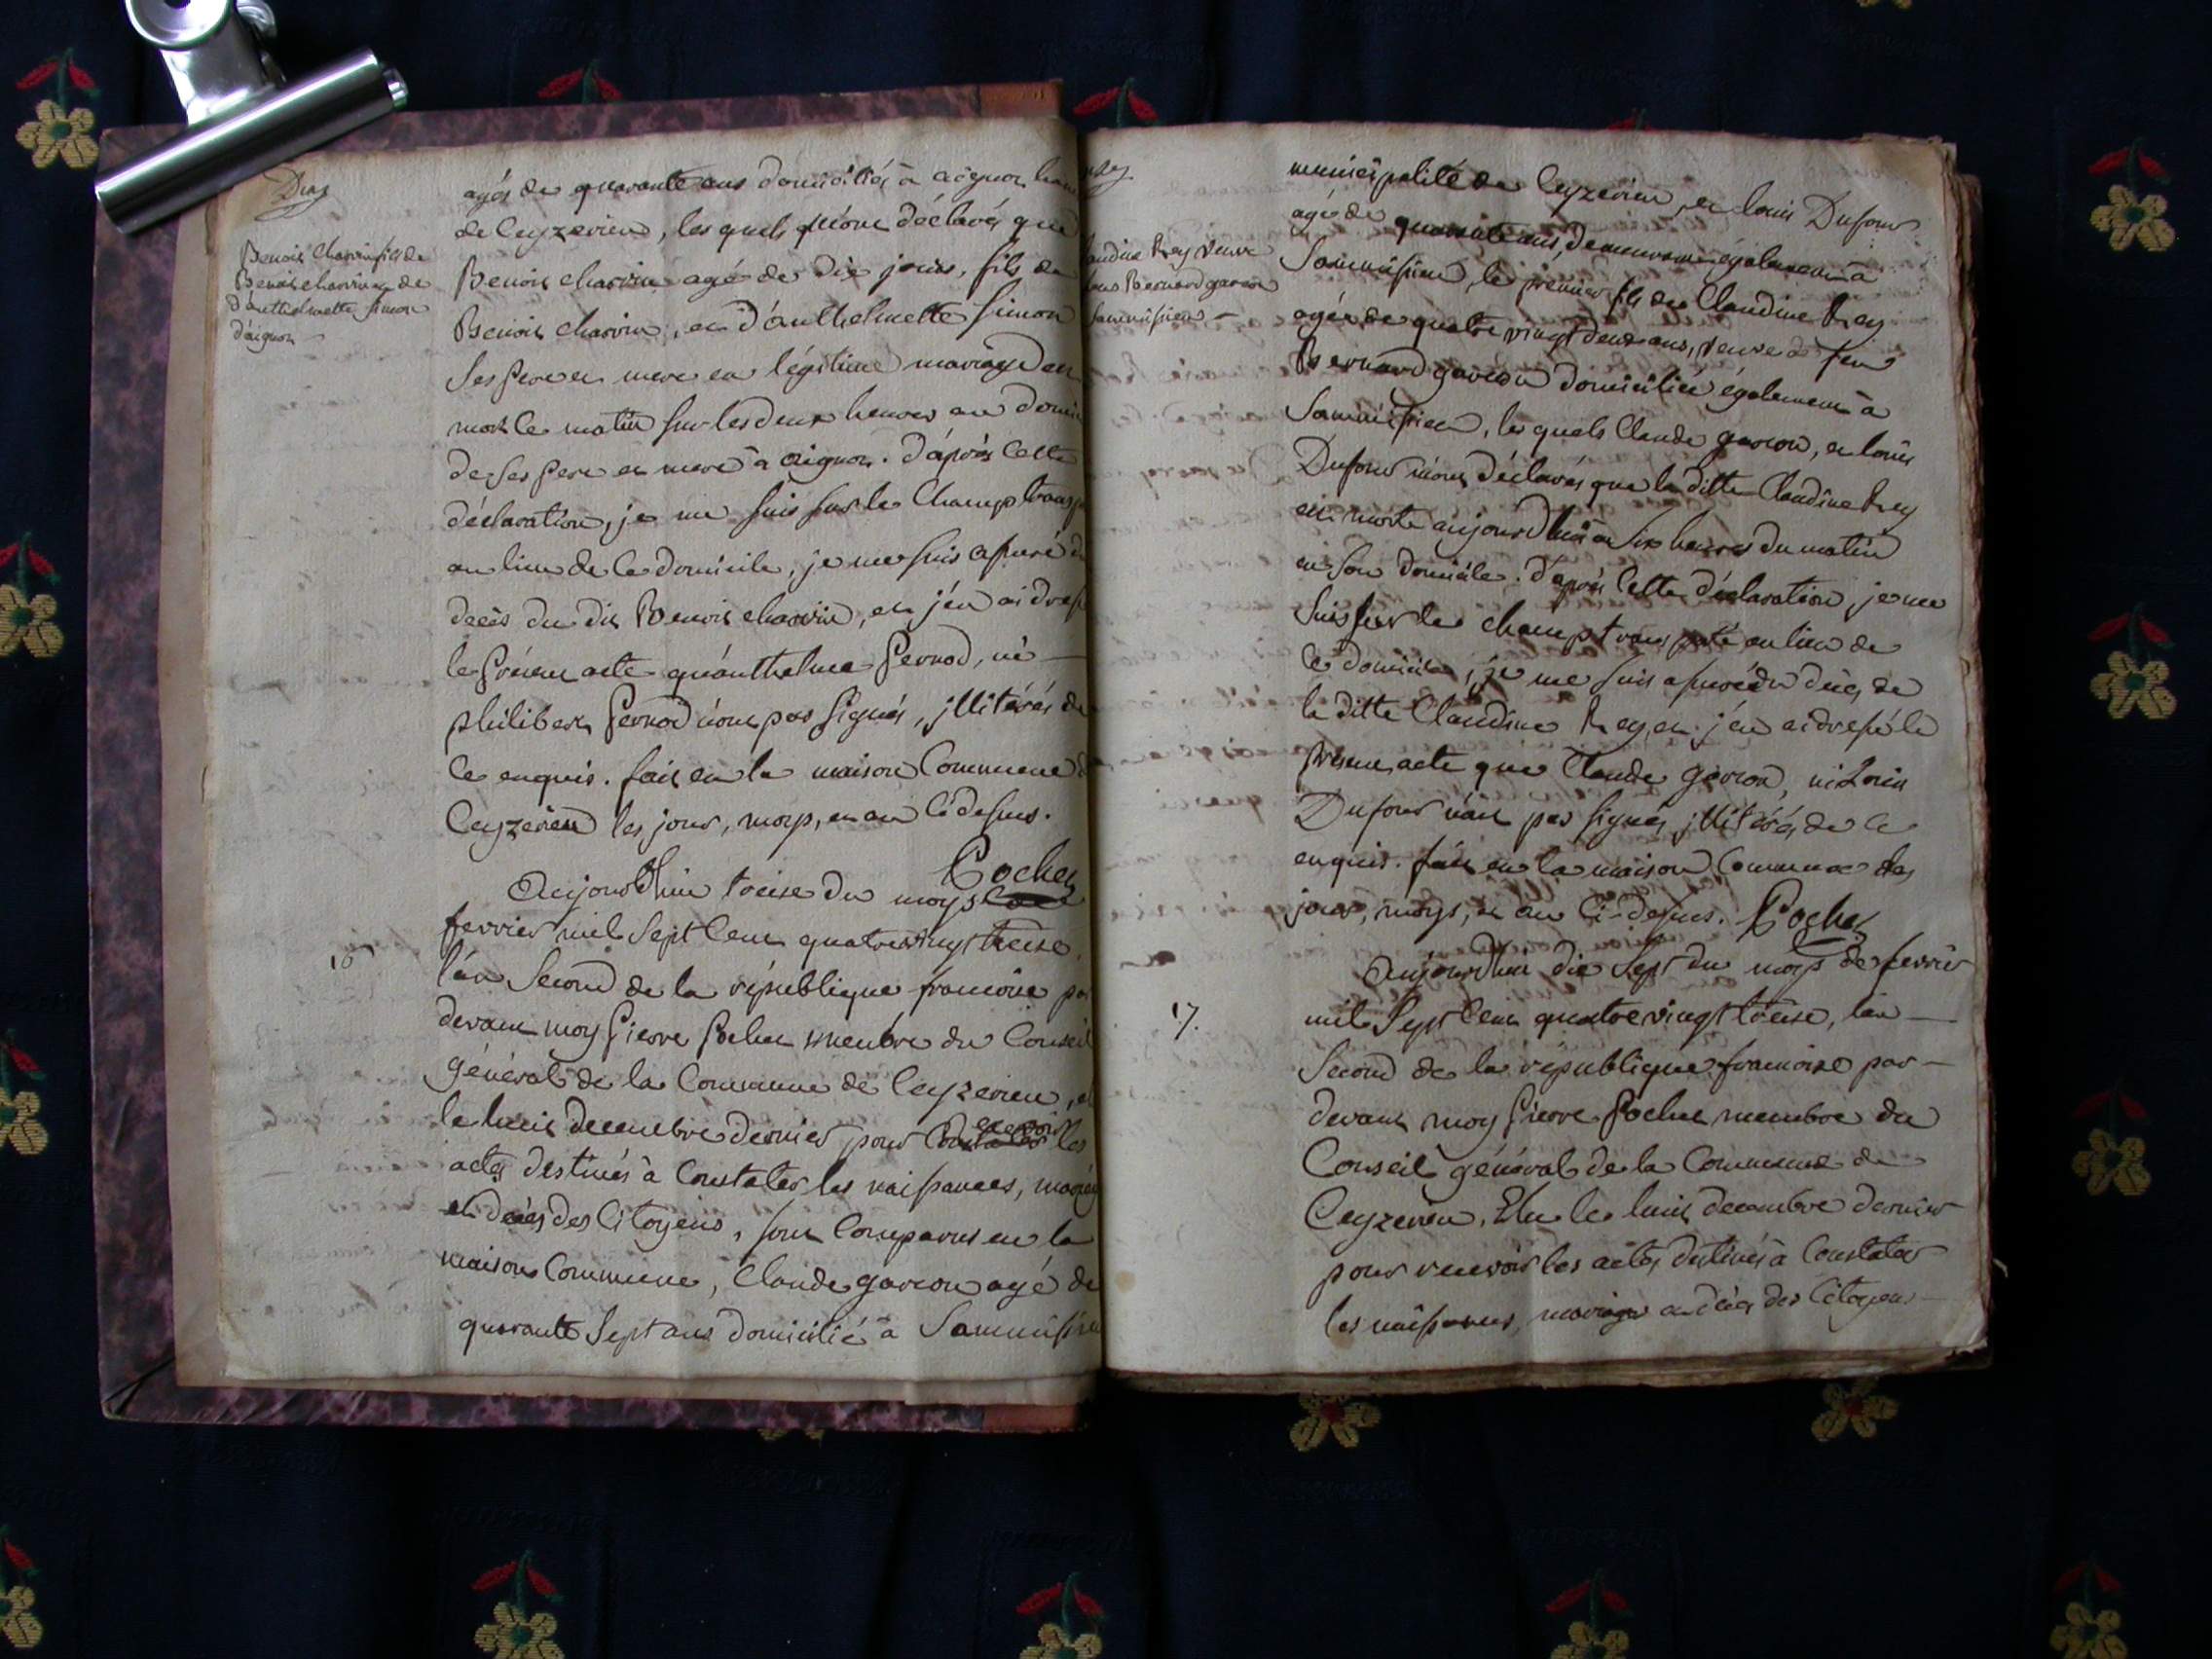 agés de quarante ans domiciliés à aignoz
de Ceyzerieu, les quels m'ont déclarés que
Benoit Charvin agé de dix jours, fils de
Benoit Charvin, et d'anthelmette Simon
ses pere et mere en légitime mariage est
mort ce matin sur les deux heures au
de ses pere et mere à aignoz. d'après cette
déclaration, je me suis sur le champ
au lieu de ce domicile, je me suis assuré
décès du dit Benoit Charvin, et j'en ai
le présent acte qu'anthelme Pernod, ni
philibert Pernod n'ont pas signés, illitérés de
ce enquis. fait en la maison Commune
Ceyzerieu les jour, moys, et an ci dessus.
Pochet
Benoit Charvin fils de
Benoit Charvin et de
d'anthelmette Simon
d'aignoz
16
Aujourd'huy treise du moys
fevrier mil sept cent quatrevingt treise
l'an second de la république françoise par
devant moy Pierre Pochet membre du Conseil
général de la Commune de Ceyzerieu,
le huit decembre dernier pour recevoir les
actes destinés à Constater les naissances,
et décès des Citoyens, sont Comparus en la
maison Commune, Claude garcon agé de
quarante sept ans domicilié à
municipalité de Ceyzerieu, et louis Dufour
agé de quarante ans, demeurant également à
le premier fils de Claudine Rey
agée de quatre vingt deux ans, veuve de feu
Bernard garcon domiciliée également à
les quels Claude garcon, et louis
Dufour m'ont déclarés que la ditte Claudine Rey
est morte aujourd'hui à six heures du matin
en son domicile. d'après cette déclaration, je me
suis sur le champ transporté au lieu de
ce domicile, je me suis assuré du décès de
la ditte Claudine Rey, et j'en ai dressé le
présent acte que Claude garcon, ni Louis
Dufour n'ait pas signés, illitérés de ce
enquis. fait en la maison Commune les
jour, moys, et an ci-dessus. Pochet
Rey veuve
Bernard garcon
17.
Aujourd'hui dix sept du moys de fevrier
mil sept cent quatrevingt treise, l'an
second de la république françoise par
devant moy Pierre Pochet membre du
Conseil général de la Commune de
Ceyzerieu, Elu le huit decembre dernier
pour recevoir les actes destinés à Constater
les naissances, mariages et décès des Citoyens